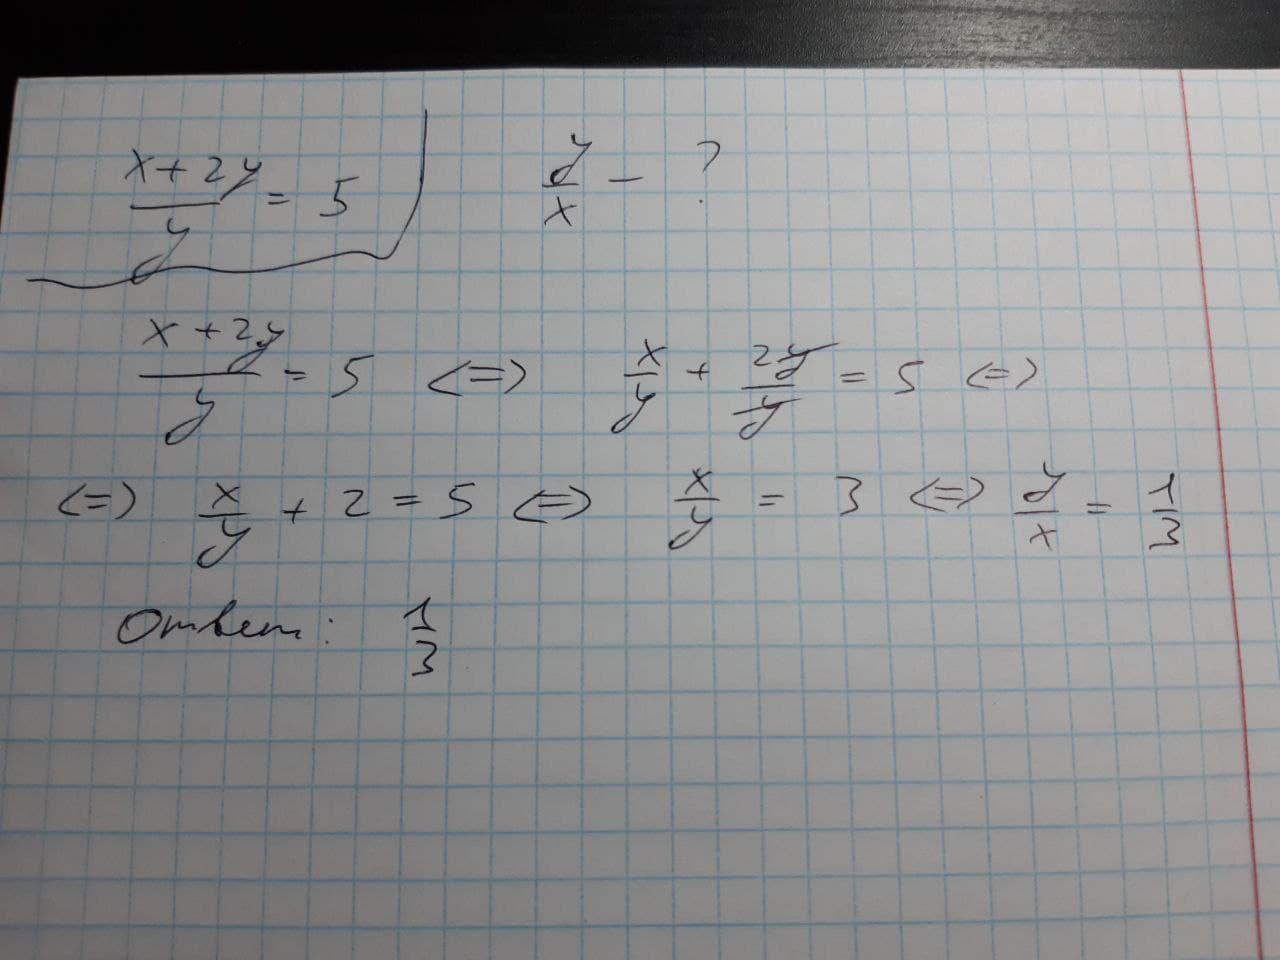 (x+2y)/y = 5    y/x - ?
(x+2y)/y = 5 <=> x/y + 2y/y = 5 <=>
<=> x/y + 2 = 5 <=> x/y = 3 <=> y/x = 1/3
Ответ: 1/3